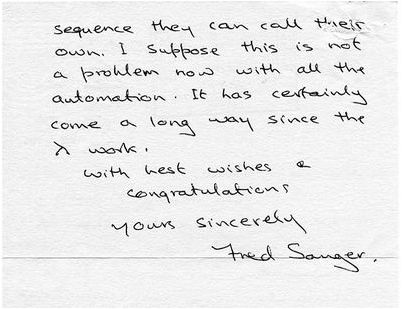 sequence they can call their
own. I suppose this is not
a problem now with all the
automation. It has certainly
come a long way since the
λ work.
with best wishes &
congratulations
yours sincerely
Fred Sanger.